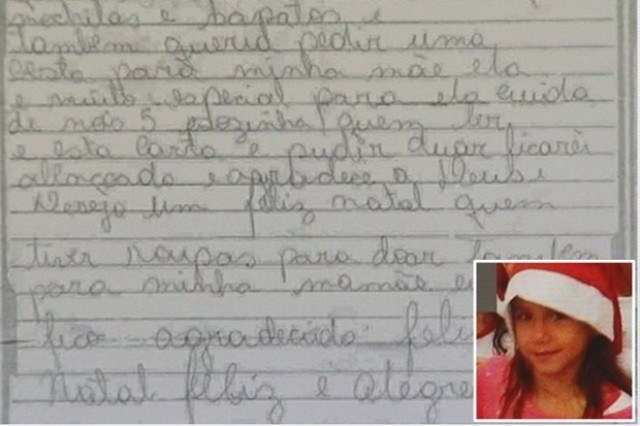 mochilas e sapatos e
tambem queria pedir uma
cesta para minha mãe ela
e muito especial para ela cuida
de nós 5 sozinha quem ler
e esta carta e pudir duar ficarei
agradece a Deus
Desejo um feliz natal quem
tiver roupas para doar tambem
para minha mamãe e
fico agradecido feli
Natal feliz e alegre